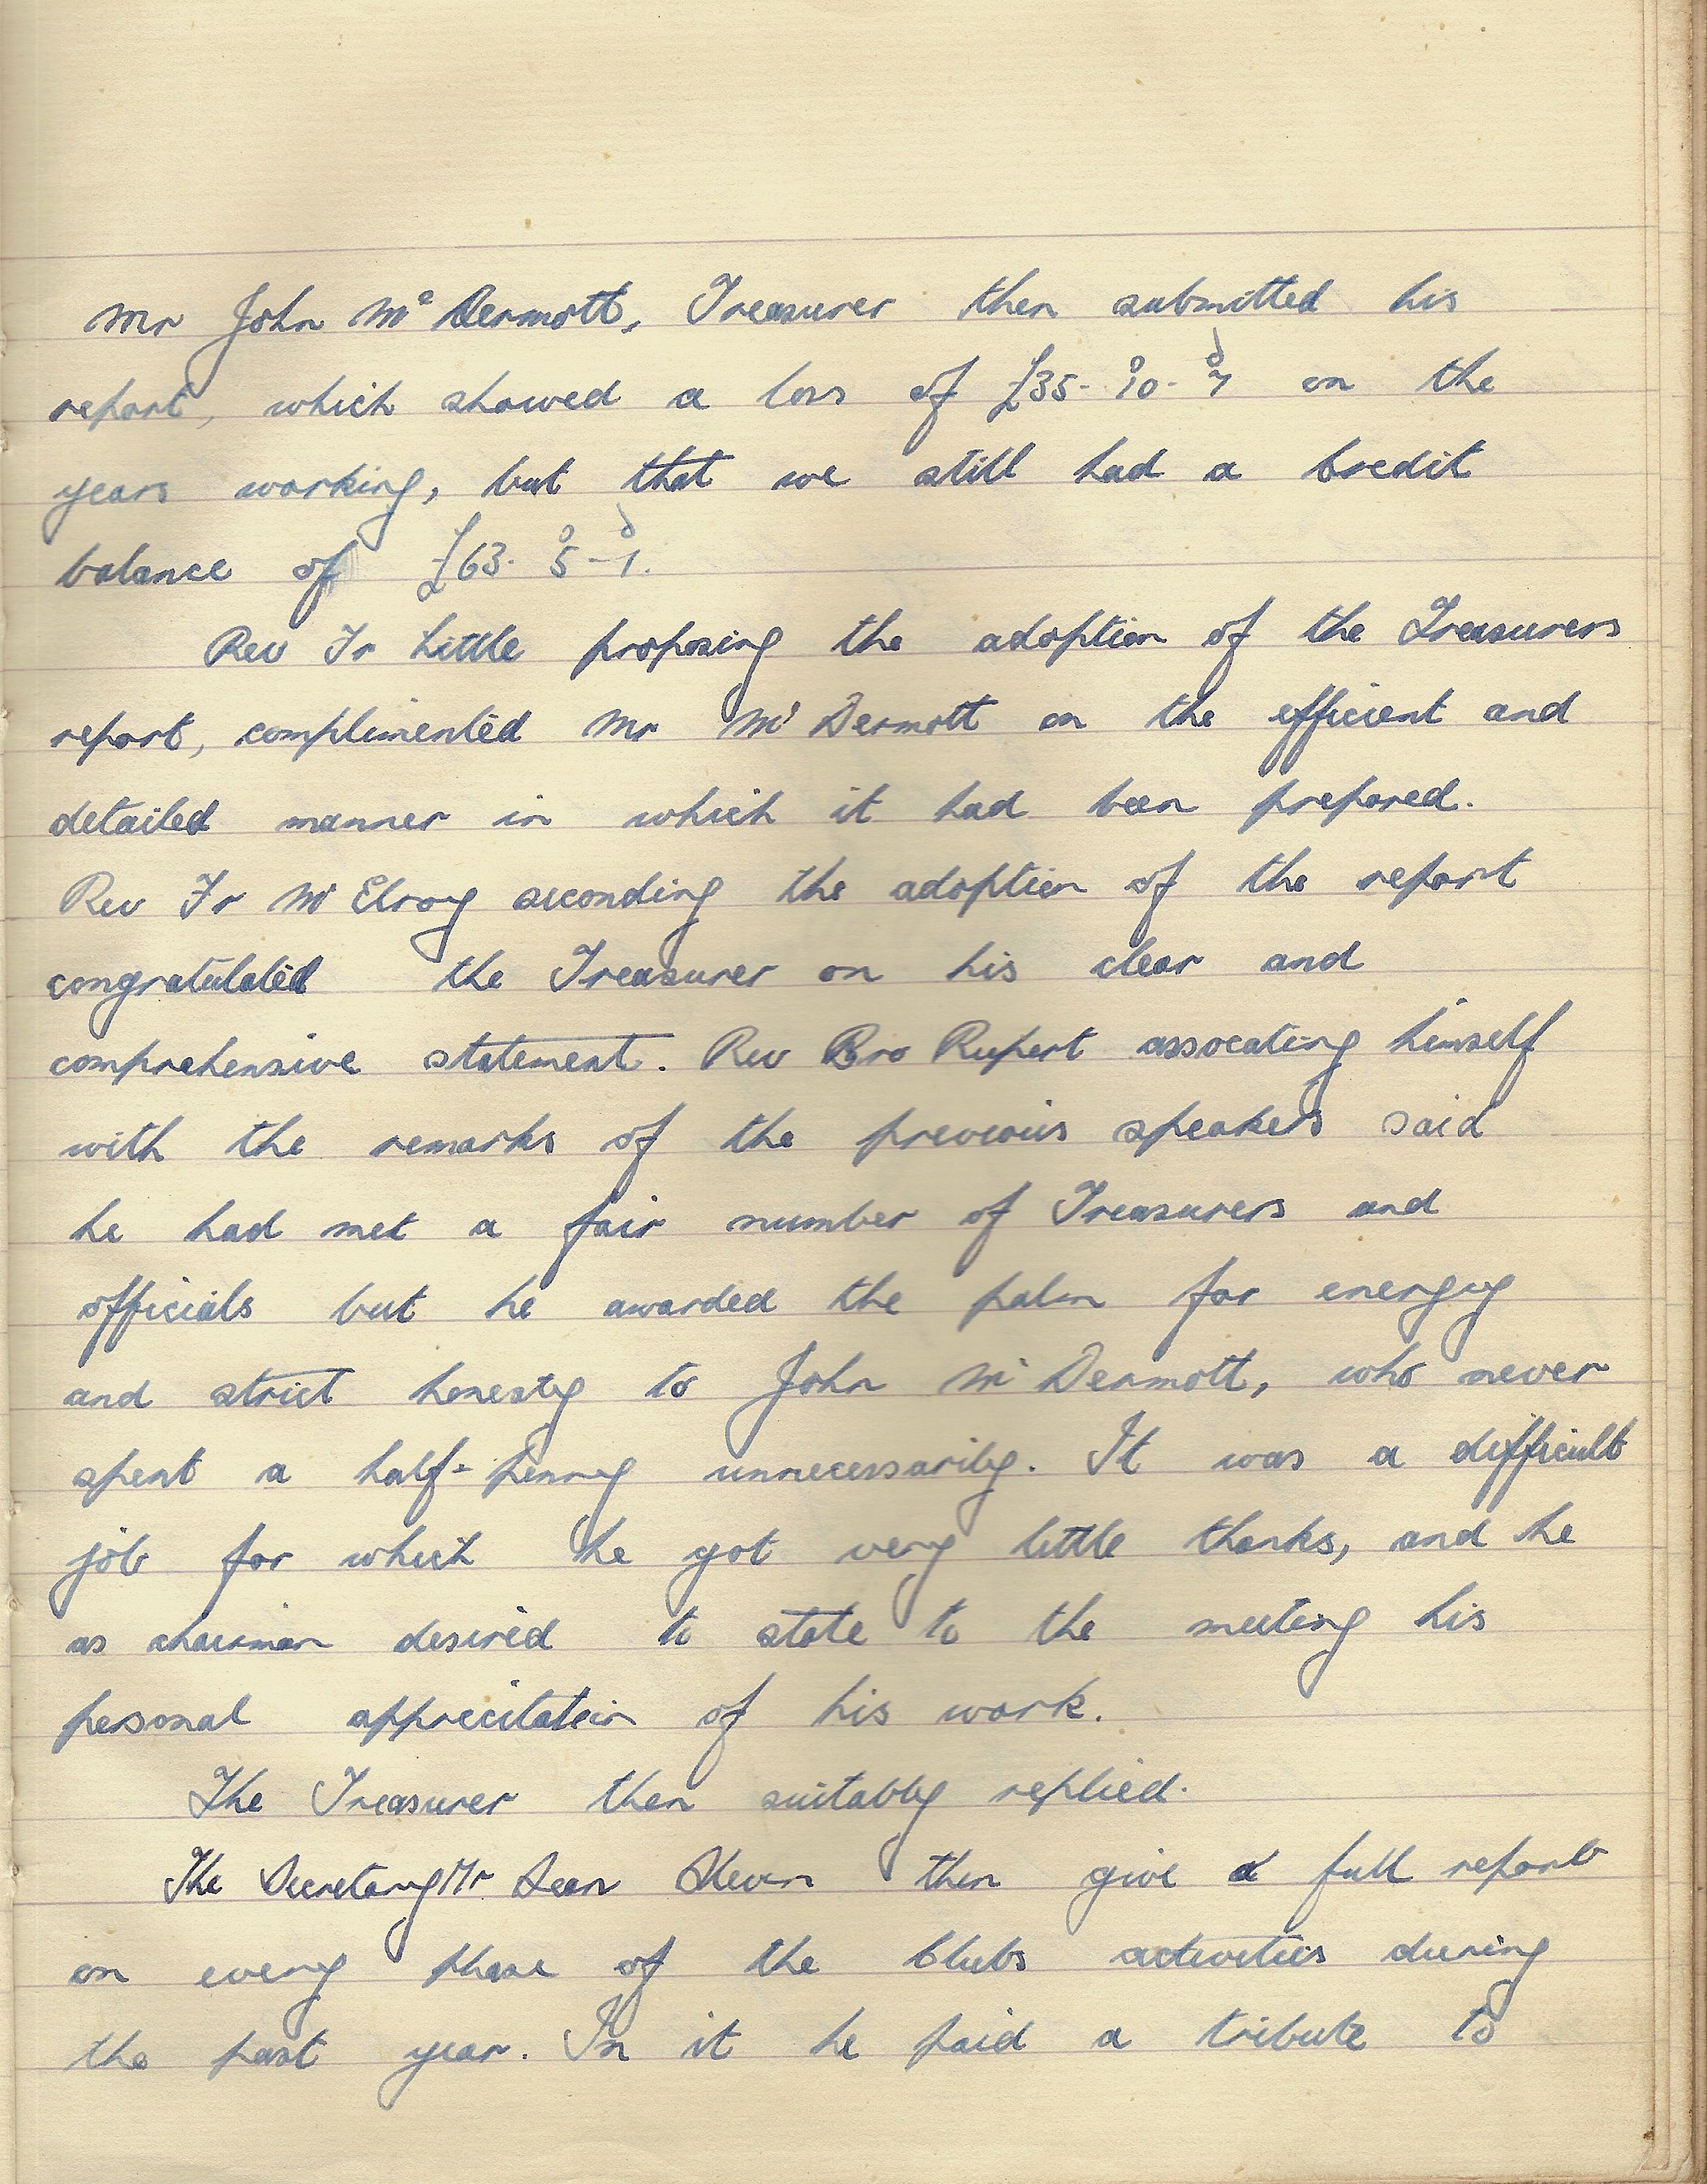 Mr John Mc Dermott, Treasurer then submitted his
report, which showed a loss of £35-10s-7d on the
years working, but that we still had a Credit
balance of £63. 5s-1d.
Rev Fr Little proposing the adoption of the Treasurers
report, complimented Mr Mc Dermott on the efficient and
detailed manner in which it had been prepared.
Rev Fr Mc Elroy seconding the adoption of the report
congratulated the Treasurer on his clear and
comprehensive statement. Rev Bro Rupert assocating himself
with the remarks of the previous speakers said
he had met a fair number of Treasurers and
officials but he awarded the palm for energy
and strict honesty to John Mc Dermott, who never
spent a half-penny unnecessarily. It was a difficult
job for which he got very little thanks, and he
as chairman desired to state to the meeting his
personal apprecitation of his work.
The Treasurer then suitably replied.
The Secretary Mr. Sean Slevin then give a full report
on every phase of the Clubs activities during
the past year. In it he paid a tribute to